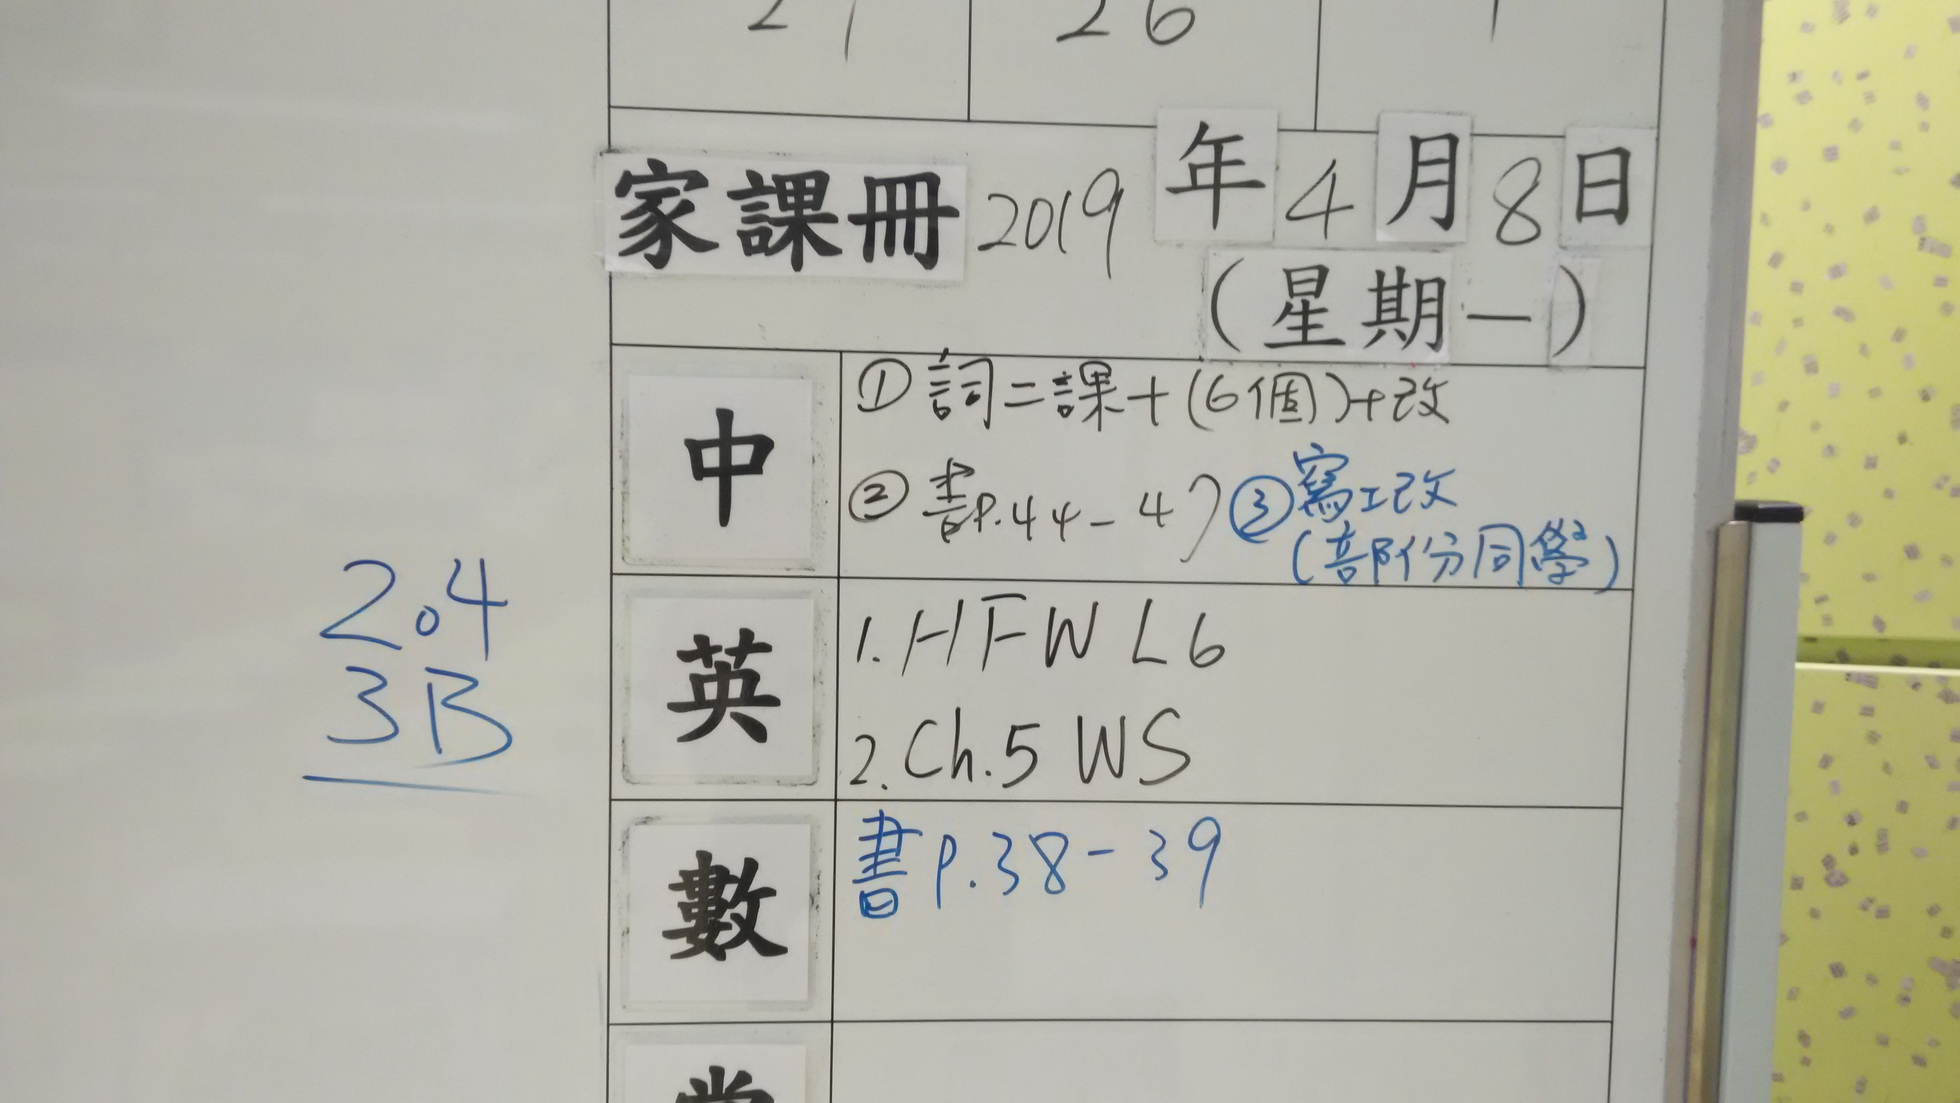 26
家課冊 2019年4月8日
(星期一)
中
① 詞二課+(6個)+改
② 書P.44-47 ③ 寫工改
(部份同學)
2.4
3B
英
1. HFW L6
2. Ch.5 WS
數
書 P.38-39